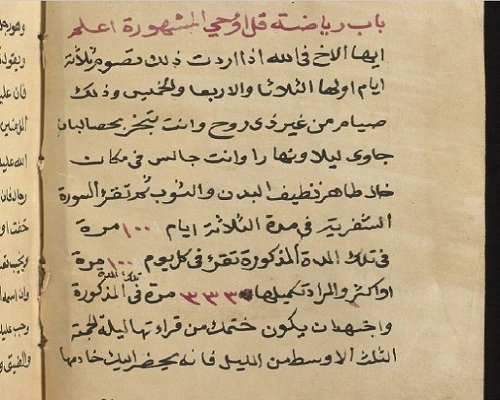 باب رياضة قل اوحي المشهورة اعلم
ايها الاخ في الله اذا اردت ذلك تصوم ثلاثة
ايام اولها الثلاثا والاربعا والخميس وذلك
صيام من غير ذى روح وانت تبخر بحصالبان
جاوى ليلا ونهارا وانت جالس فى مكان
خال طاهر نظيف البدن والثوب ثم تقرأ السورة
الشريفة فى مدة الثلاثة ايام ١٠٠٠ مرة
فى تلك المدة المذكورة تقرئ فى كل يوم ١٠٠ مرة
او اكثر والمراد تكميلها ٣٣٣ مرة فى المدة المذكورة
واجتهد ان يكون ختمك من قراءتها ليلة الجمعة
الثلث الاوسط من الليل فانه يحضر اليك خادمها